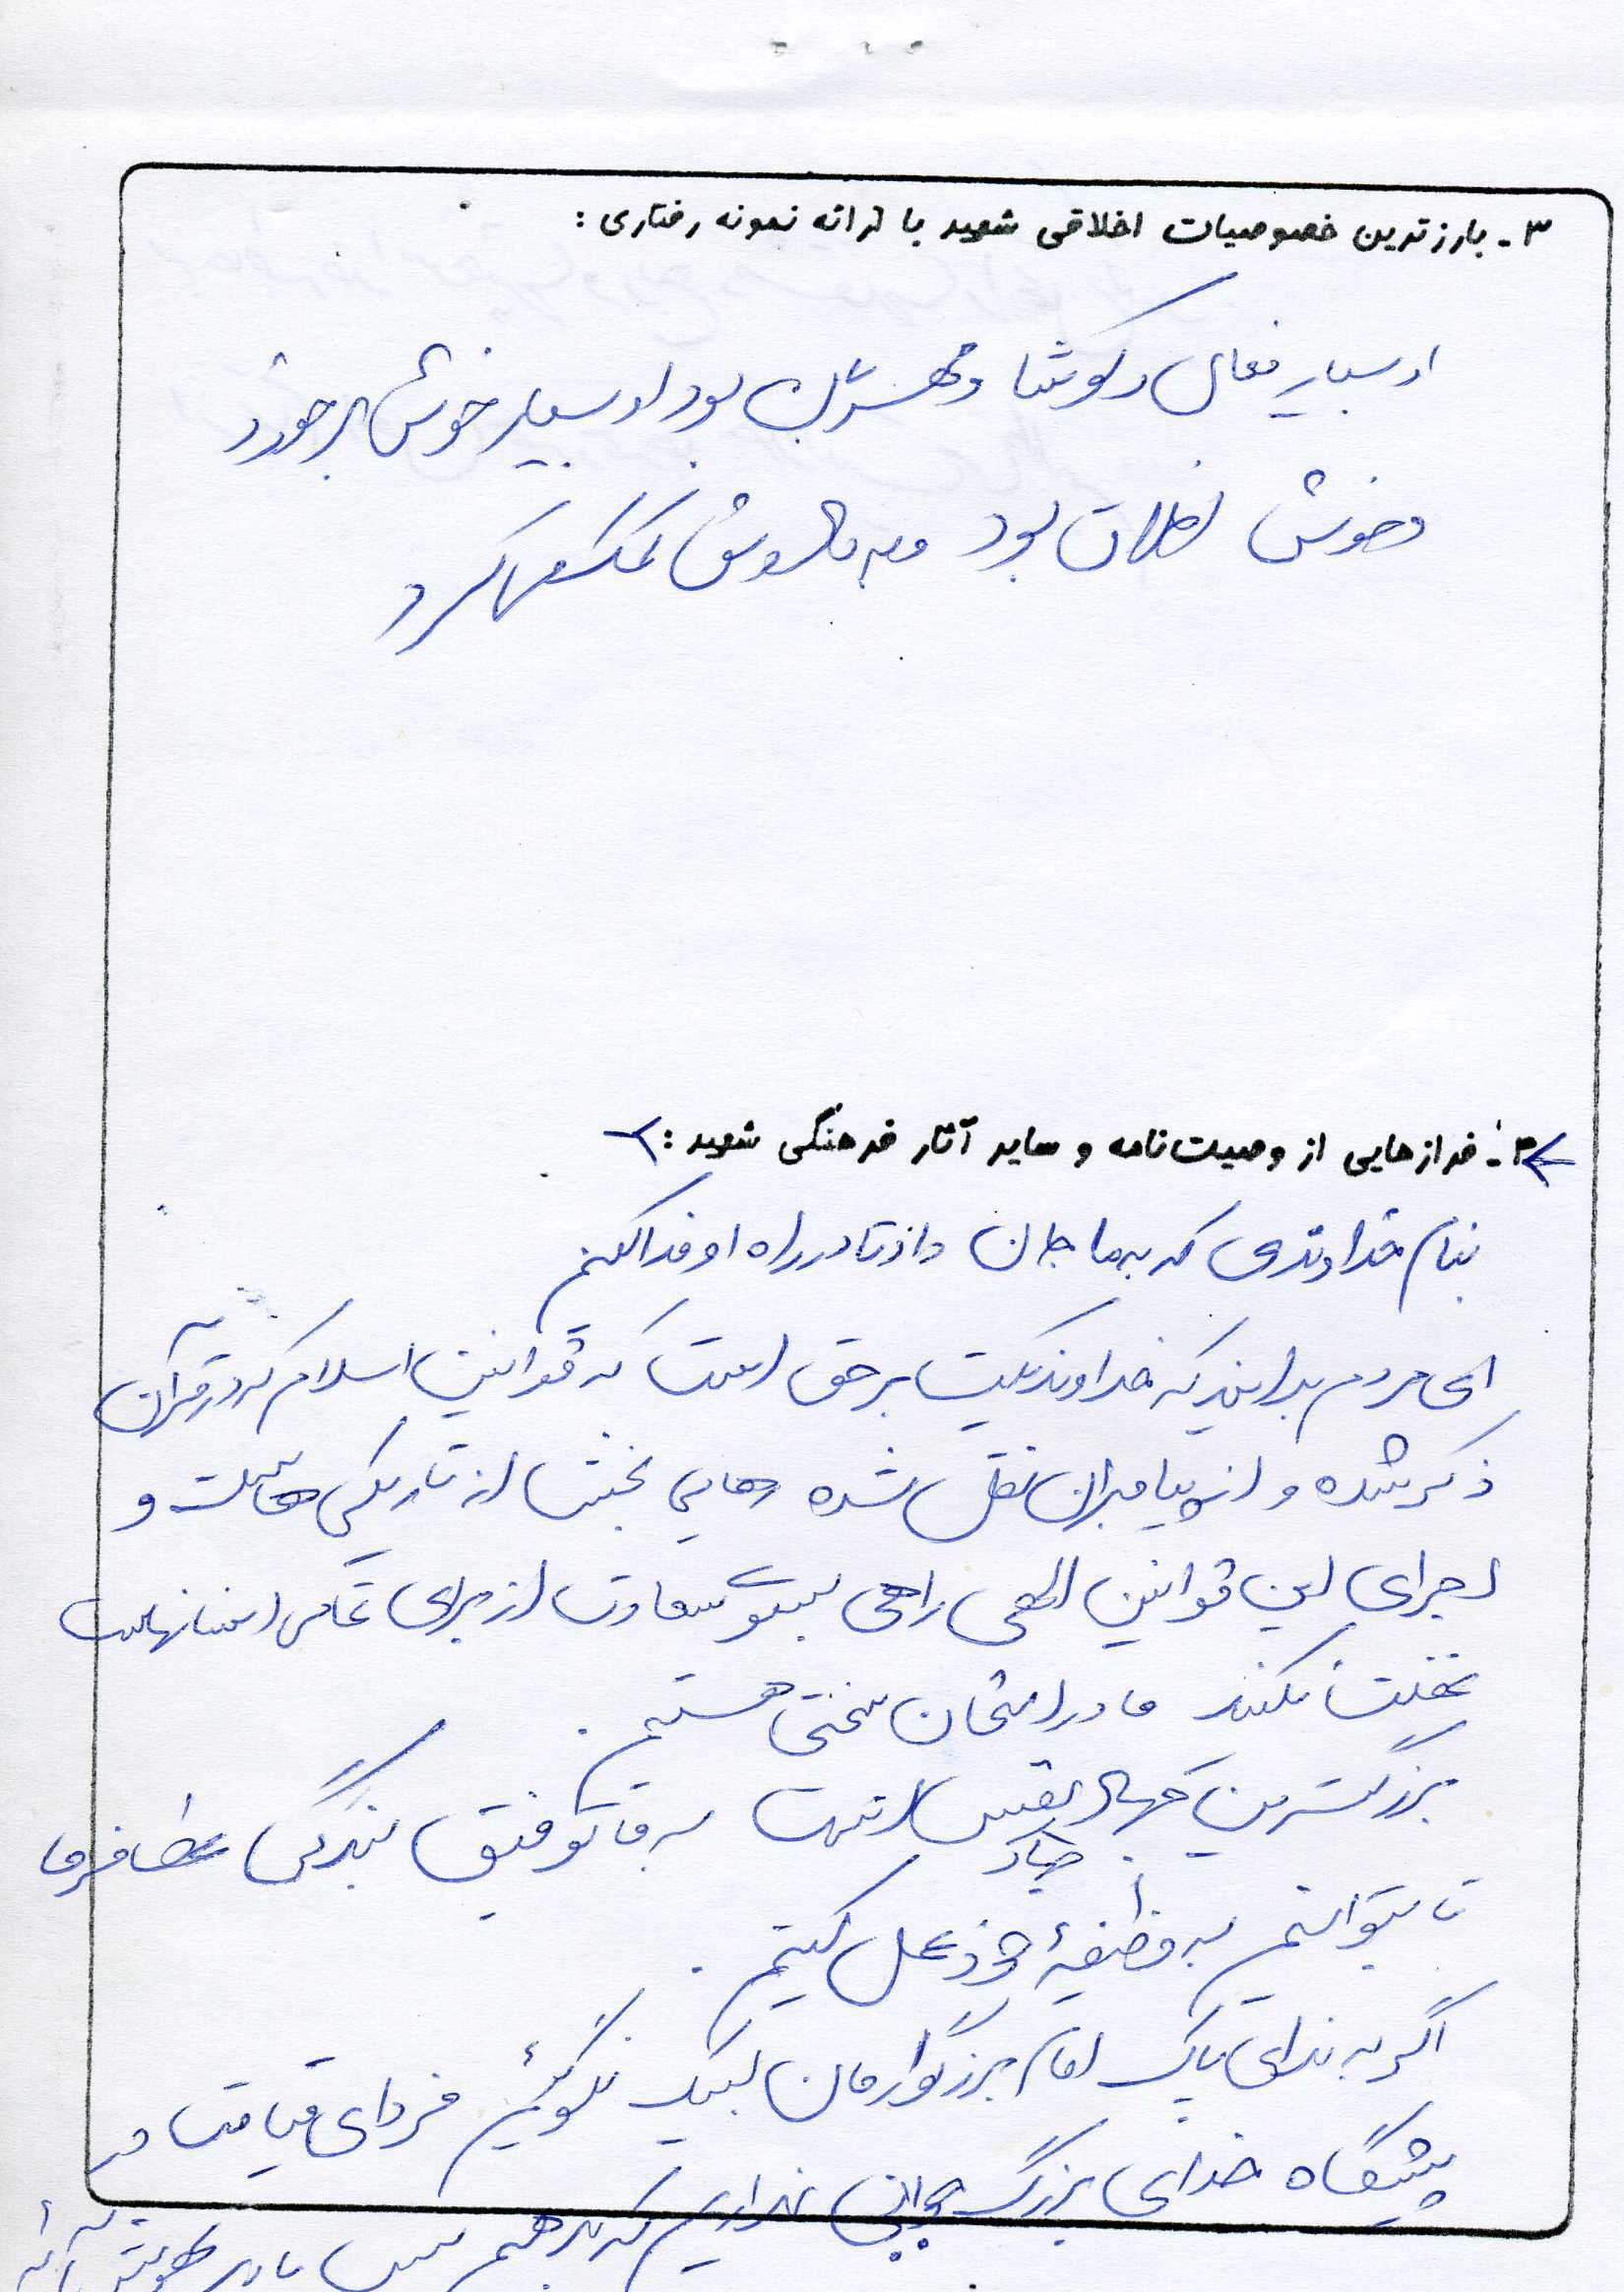 ۳- بارزترین خصوصیات اخلاقی شهید با ارائه نمونه رفتاری:
او بسیار فعال و کوشا و مهربان بود او بسیار خوش برخورد
و خوش اخلاق بود و به مادرش کمک می‌کرد
۴- فرازهایی از وصیت‌نامه و سایر آثار فرهنگی شهید:
بنام خداوندی که به ما جان داد تا در راه او فدا کنیم
ای مردم بدانید که خداوند یکیست برحق است که قوانین اسلام که در قرآن
ذکر شده و از پیامبران نقل شده رهایی بخش از تاریکی هاست و
اجرای این قوانین الهی راهی بسوی سعادت از برای تمامی انسانهاست
غفلت نکنید ما در امتحان سختی هستیم.
بزرگترین جهاد نفس است به ما توفیق بندگی عطا فرما
جهاد
تا بتوانیم به وظیفهٔ خود عمل کنیم.
اگر به ندای پاک امام بزرگوارمان لبیک نگوئیم فردای قیامت در
پیشگاه خدای بزرگ جوابی نداریم که بدهیم پس باید